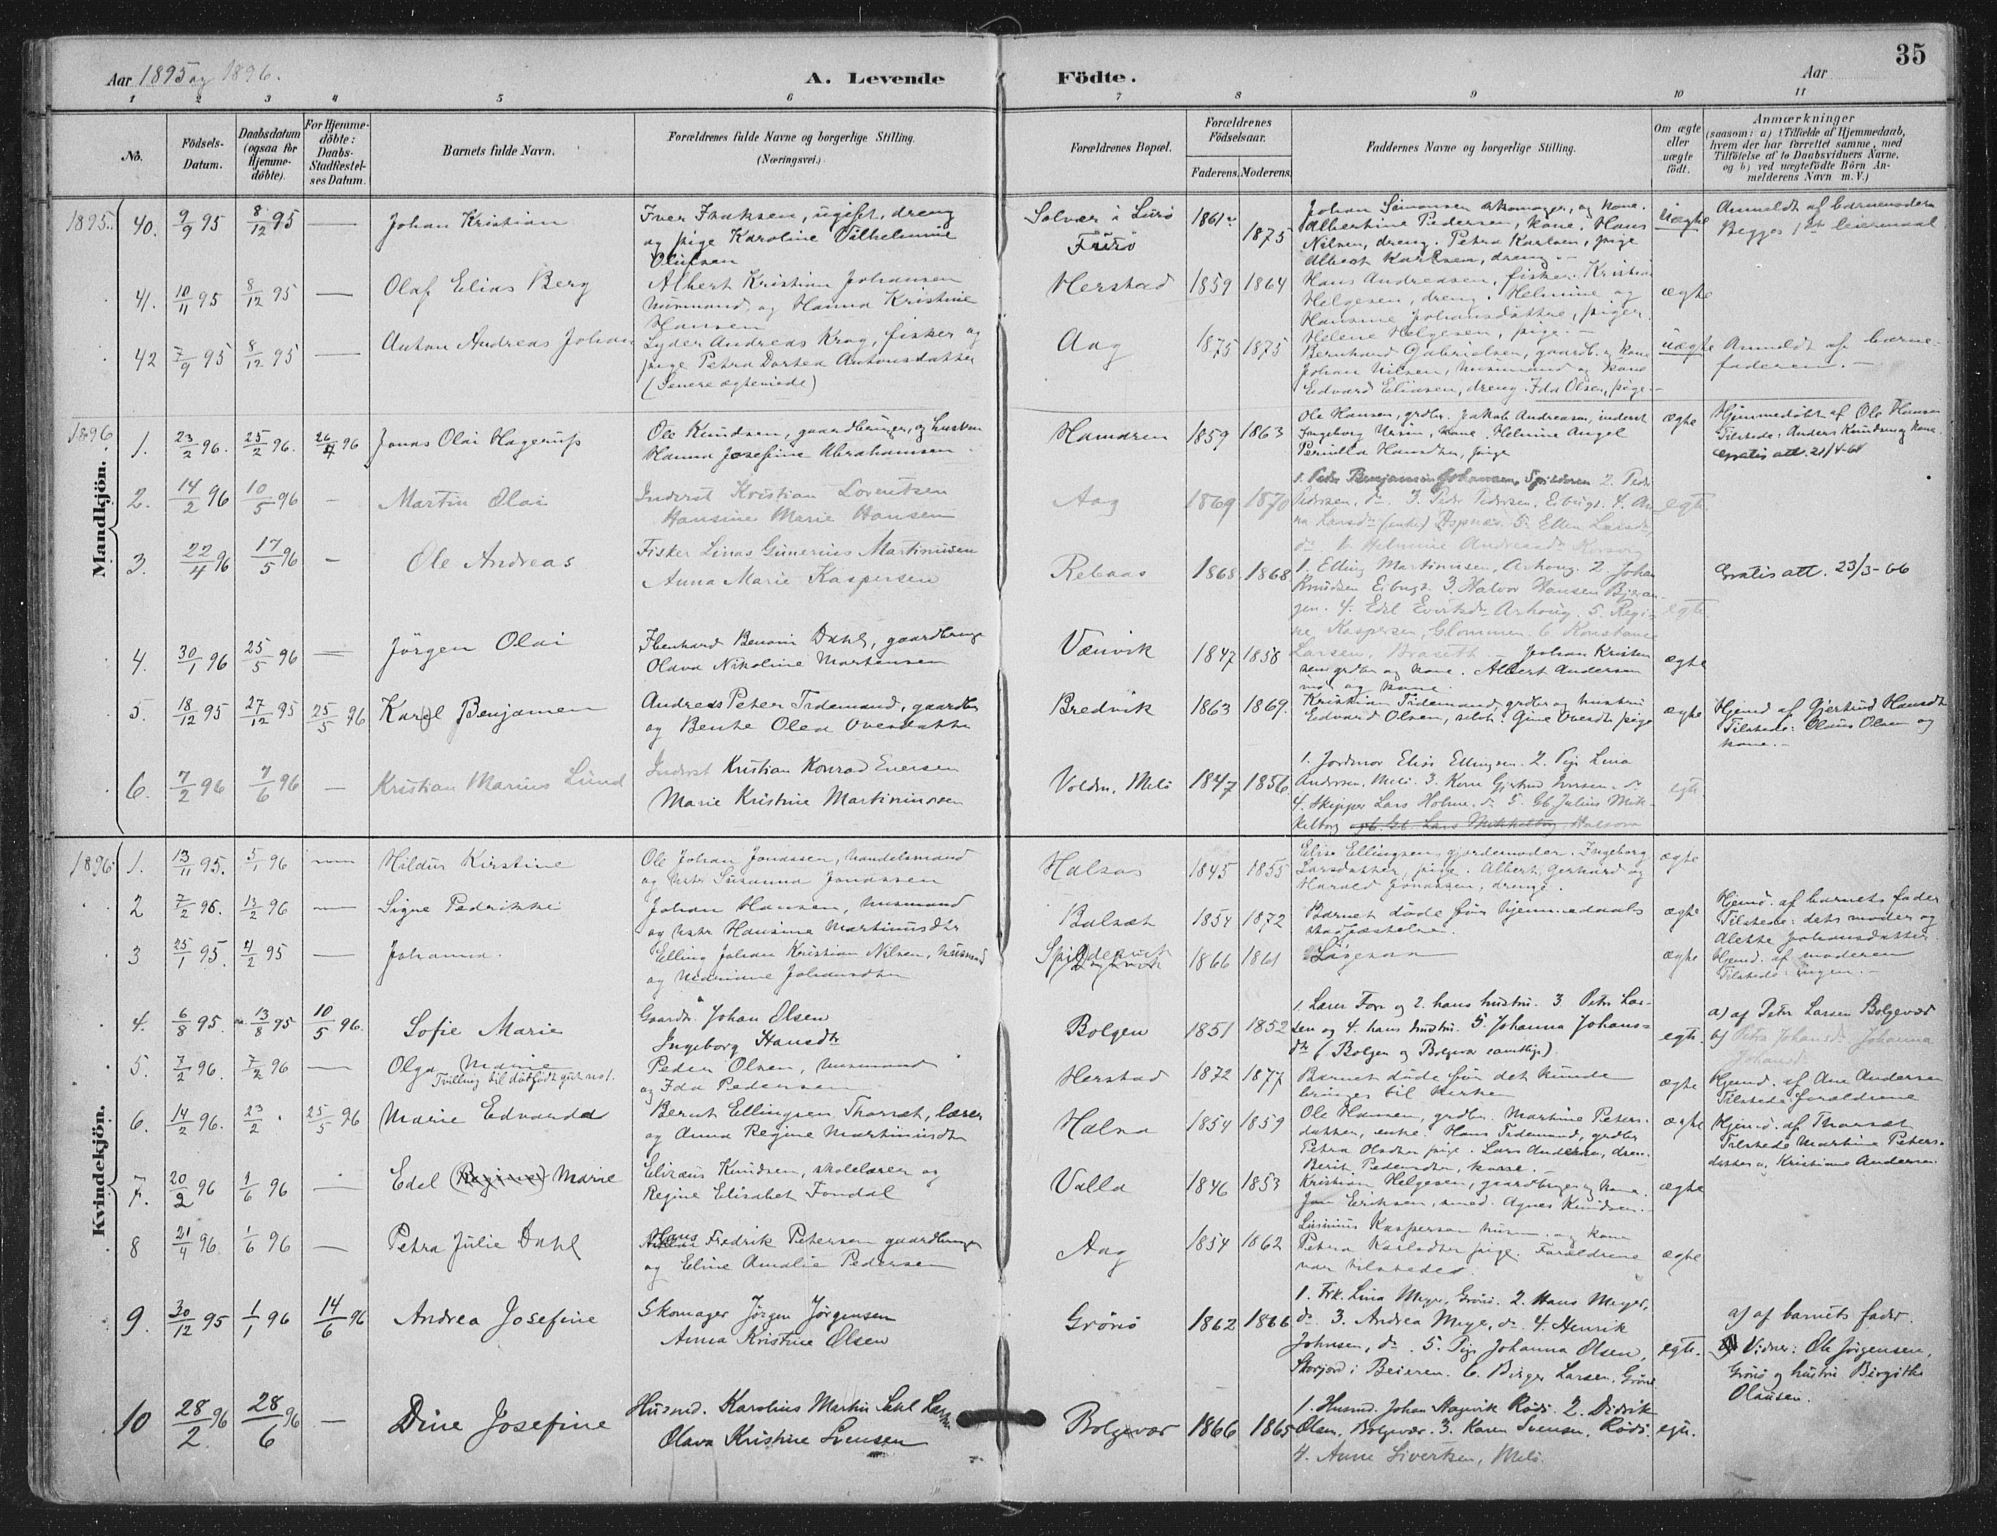 Aar 1895 og 1896.
A. Levende Födte.
Aar
35
1 2 3 4 5 6 7 8 9 10 11
No.
Födsels-Datum.
Daabsdatum (ogsaa för Hjemme-döbte).
For Hjemme-döbte: Daabs-Stadfæstel-ses Datum.
Barnets fulde Navn.
Forældrenes fulde Navne og borgerlige Stilling. (Næringsvei.)
Forældrenes Bopæl.
Forældrenes Födselsaar.
Faderens. Moderens.
Faddernes Navne og borgerlige Stilling.
Om ægte eller uægte födt.
Anmærkninger (saasom: a) i Tilfælde af Hjemmedaab, hvem der har forrettet samme, med Tilföielse af to Daabsvidners Navne, og b) ved uægtefödte Börn An-melderens Navn m. V.)
1895.
40. 9/9 95 8/12 95 — Johan Kristian
og pige Karoline Vilhelmine
Olufsen
Solvær i Lurö
1861 1875
Nilsen, dreng. Petra Karlsen, pige
Albert Karlsen, dreng.
uægte
Anmeldt af barnemoderen
Begges 1st leiermaal
41. 10/11 95 8/12 95 — Olaf Elias Berg
Albert Kristian Johansen
husmand, og Hanna Kristine
Hansen
Herstad 1859 1864
Hans Andreasen, fisker. Kristian
Helgesen, dreng. Helmine og
Hansine Johansdattre, piger.
Helene Helgesen, pige.
ægte
42 7/9 95 8/12 95 — Anton Andreas Johan
Lyder Andreas Krog, fisker og
pige Petra Dortea Antonsdatter
(Senere ægteviede)
Aag 1875 1875
Bernhard Gabrielsen, gaardb. og kone
Johan Nilsen, husmand og kone
Edvard Eliasen, dreng. Ida Olsen, pige.
uægte
Anmeldt af barne-
faderen.
1896
Mandkjön.
1. 23/2 96. 25/2 96. 26/4 96 Jonas Olai Hagerup
Ole Knudsen, gaardbruger, og hustru
Hanna Josefine Abrahamsen
Hamaren 1859 1863
Ole Hansen, grdbr. Jakob Andreasen, inderst
Ingeborg Ursin, kone. Helmine Angel
Pernilla Hansdtr, pige
ægte
Hjemmedöbt af Ole Hansen
Tilstede: Anders Knudsen og kone.
Gratis att. 21/4-61
2. 14/2 96 10/5 96 — Martin Olai
Inderst Kristian Lorentsen
Hansine Marie Hansen
Aag 1869 1870
1. Peder Benjamin Johansen, Spilderen 2. Peder
Pedersen, do. 3. Peder Pedersen, Eibugt. 4. An-
egte.
3. 22/4 96 17/5 96 — Ole Andreas
Fisker Linas Gunerius Martinusen
Anna Marie Kaspersen
Rebaas 1868 1868
1. Elling Martinussen, Arhoug. 2. Johan
Knudsen Eibugt. 3. Halvor Hansen Bjæran-
gen. 4. Edel Evertsdr Arhoug. 5. Regi-
ne Kaspersen, Glommen. 6. Konstance
Larsen, Braseth
egte
Gratis att. 23/3-66
4. 30/1 96 25/5 96 — Jörgen Olai
Ibenhard Benoni Dahl, gaardbruger
Olava Nikoline Mortensen
Vænvik 1847 1858
Johan Kristen
sen grdbr og kone. Albert Andersen
og kone.
ægte
5. 18/12 95 27/12 95 25/5 96 Karl Benjamen
Andreas Peter Tidemand, gaardbr
og Bente Olea Oversdatter
Bredvik 1863 1869.
Kristian Tidemand, grdbr og hustru
Edvard Olsen, selvb. Gine Oversdtr pige
ægte
Hjemd. af Gjertrud Hansdtr
Tilstede: Claus Olsen og
kone.
6. 7/2 96 7/6 96 — Kristian Marius Lund
Inderst Kristian Konrad Evensen
Marie Kristine Martinussen
Voldn. Melö 1847 1856
1. Jordmor Elise Ellingsen. 2. Pige Lina
Andersen, Melö. 3. Kone Gjertrud Iversen. do
4. Skipper Lars Holme. do 5. Gb. Julius Mik-
kelborg
egte.
1896
Kvindekjön.
1. 13/11 95. 5/1 96 — Hildur Kirstine
Ole Johan Jonassen, handelsmand
og hstr Susanna Jonassen
Halsaa 1845 1855
Elise Ellingsen gjordemoder. Ingeborg
Larsdatter, pige. Albert, Gerhard og
Harald Jonassen, drenge.
ægte
2 7/2 96. 13/2 96 — Signe Pedrikke
Johan Hansen, husmand
og hstr Hansine Martinusdtr
Balsæt 1854 1872
Barnet döde för hjemmedaabs
stadfæstelse.
ægte
Hjemd. af barnets fader
Tilstede: dets moder og
Alette Johansdatter.
3 25/1 95. 4/2 95 — Johanna.
Elling Johan Kristian Nilsen, husmd
1866 1861
Ligesaa
ægte
Hjemd. af moderen
Tilstede: ingen.
4. 6/8 95 13/8 95 10/5 96. Sofie Marie
Gaardbr. Johan Olsen
Ingeborg Hansdtr
Bolgen 1851 1852
1. Lars Forr og 2. hans hustru. 3. Peter Lar-
sen og 4. hans hustru. 5. Johanna Johans-
dtr (Bolgen og Bolgvær samtlige).
egte.
a) af Peter Larsen Bolgvær
b) Petra Johansdr Johanna
Johansd.
5. 7/2 96. 7/2 96 — Olga Marie
Tvilling til dödfödt gut no 1.
Peder Olsen, husmand
og Ida Pedersen
Herstad 1872 1877
Barnet döde för det kunde
bringes til kirken
ægte
Hjemd. af Ane Andersen
Tilstede forældrene
6. 14/2 96. 23/2 25/5 96 Marie Edvarda
Bernt Ellingsen Thorsæt, lærer
og Anna Regine Martinusdtr
Halsa 1854 1859
Ole Hansen, grdbr. Martine Peters-
datter, enke. Hans Tidemand, grdbr
Petra Olsdtr pige. Lars Andersen, dren.
ægte
Hjemd. af Thorsæt
Tilstede Martine Peters-
datter og Kristiane Andersen
7. 20/2 96 1/6 96 — Edel (Regine) Marie
Elizæus Knudsen, skolelærer og
Regine Elisabet Fondal
Valla 1846 1853
Kristian Helgesen, gaardbruger og kone.
Jon Eriksen, smed. Agnes Knudsen.
ægte
8 21/4 96. 1/6 96 — Petra Julie Dahl
Hans Fredrik Petersen gaardbruger
og Eline Amalie Pedersen
Aag 1854 1862
Petra Karlsdtr pige. Forældrene
var tilstede.
ægte
9. 30/12 95 1/1 96 14/6 96 Andrea Josefine
Skomager Jörgen Jörgensen
Anna Kristine Olsen
Grönö 1862 1866
1. Frk. Lina Meyer, Grönö. 2. Hans Meyer,
do. 3. Andrea Meyer, do. 4. Henrik
Johnsen, do. 5. Pige Johanna Olsen,
Storjord i Beieren. 6. Birger Larsen, Grönö
egte.
a) af barnets fader.
Vidner: Ole Jörgensen,
Grönö og hustru Birgitte
Olausen.
10 28/2 96 28/6 96 — Dine Josefine
Husmd. Karolius Martin Sahl
Olava Kristine Svensen
Bolgvær 1866 1865
1. Husmd. Johan Aagevik Rödö. 2. Didrik
Olsen, Bolgvær. 3. Karen Svensen, Rödö.
4. Anne Sivertsen, Melö.
egte.